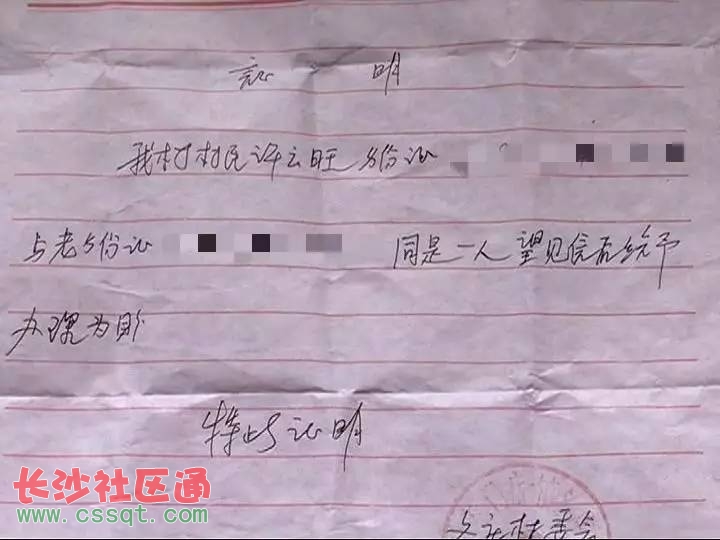 证 明
我村村民许云旺身份证
与老身份证 同是一人望见信后给予
办理为盼
特此证明
村委会
长沙社区通
www.cssqt.com